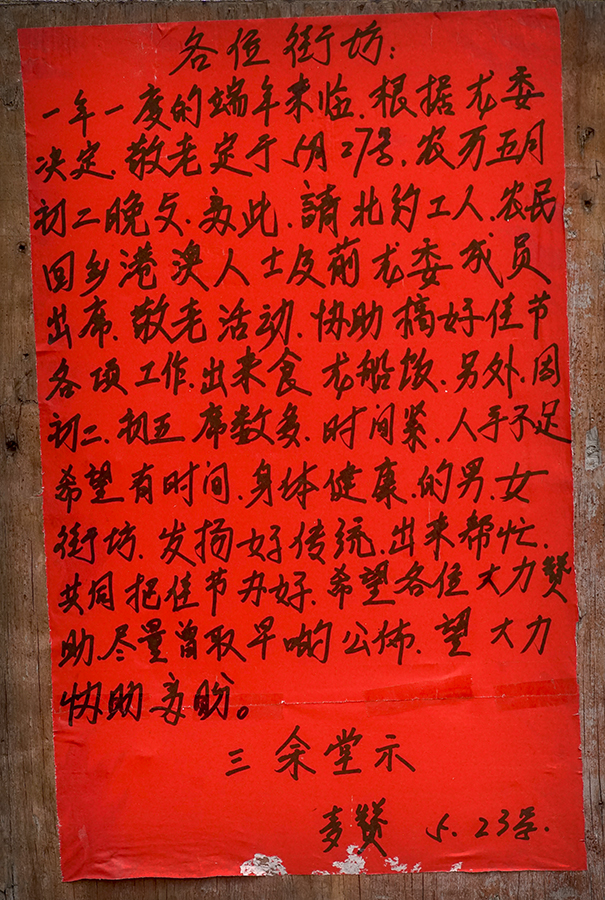 各位街坊:
一年一度的端午来临.根据龙委
决定.敬老定于5月27号.农历五月
初二晚

.为此.請北约工人.农民
回乡港澳人士及前龙委成员
出席.敬老活动.协助搞好佳节
各项工作.出来食龙船饭.另外.因
初二.初五席数多.时间紧.人手不足
希望有时间.身体健康.的男.女
街坊.发扬好传统.出来帮忙.
共同把佳节办好.希望各位大力赞
助.尽量曾取早啲公佈.望大力
协助为盼。
三余堂示
多赞 5.23号.